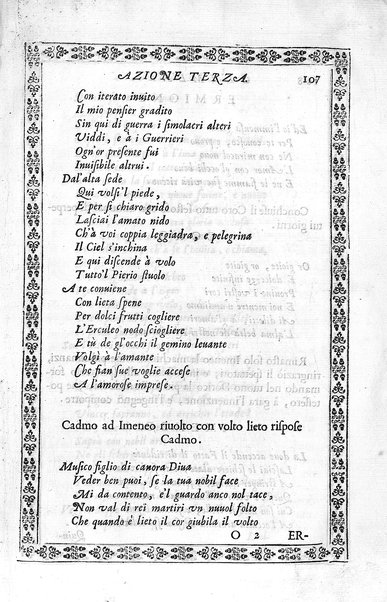 AZIONE TERZA 107
Con iterato inuito
Il mio pensier gradito
Sin qui di guerra i simolacri alteri
Viddi, e à i Guerrieri
Ogn'or presente fui
Inuisibile altrui.
Dal'alta sede
Qui volsi'l piede,
E per sì chiaro grido
Lasciai l'amato nido
Ch'à voi coppia leggiadra, e pelegrina
Il Ciel s'inchina
E quì discende à volo
Tutto'l Pierio stuolo
A te conuiene
Con lieta spene
Per dolci frutti cogliere
L'Erculeo nodo sciogliere
E tù de gl'occhi il gemino leuante
Volgi à l'amante
Che fian sue voglie accese
A l'amorose imprese.
Cadmo ad Imeneo riuolto con volto lieto rispose
Cadmo.
Musico figlio di canora Diua
Veder ben puoi, se la tua nobil face
Mi da contento, e'l guardo anco nol tace,
Non val di rei martiri vn nuuol folto
Che quando è lieto il cor giubila il volto
O 2 ER-